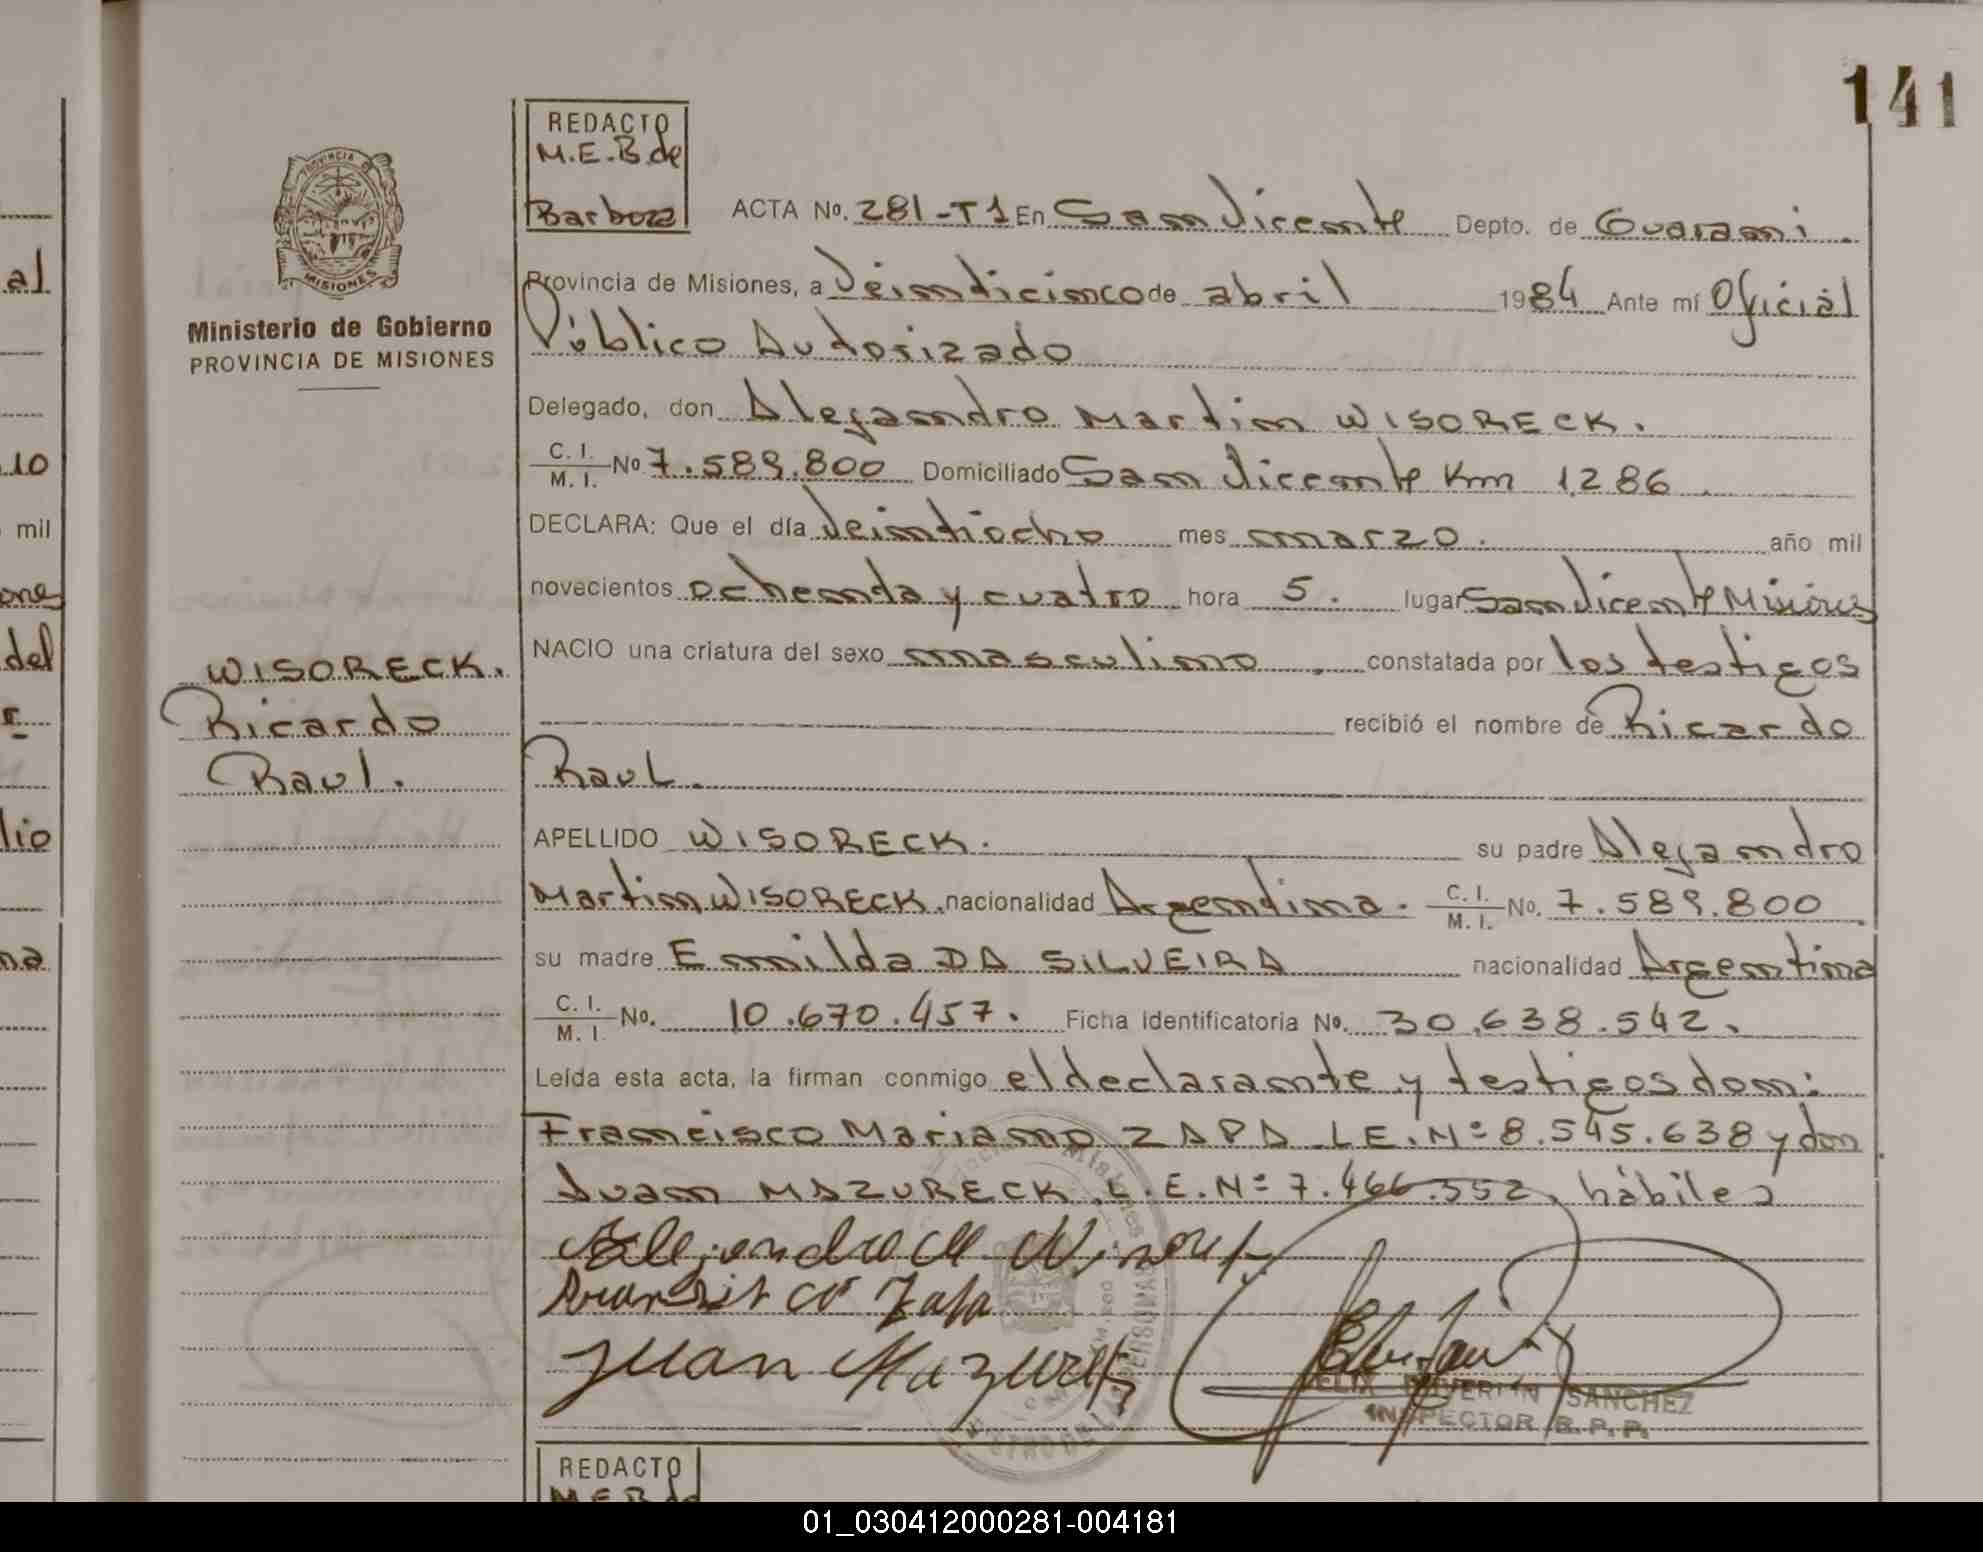 141
REDACTO
M.E.B.de
Barboza
ACTA No. 281-T1 En San Vicente Depto. de Guarani.
Provincia de Misiones, a Veinticinco de abril 1984 Ante mí Oficial
Público Autorizado
Delegado, don Alejandro Martin WISORECK.
C. I. / M. I. No 7.589.800 Domiciliado San Vicente Km 1286
DECLARA: Que el día Veintiocho mes marzo. año mil
novecientos ochenta y cuatro hora 5. lugar San Vicente Misiones
NACIO una criatura del sexo masculino, constatada por los testigos
recibió el nombre de Ricardo
Raul.
APELLIDO WISORECK. su padre Alejandro
Martin WISORECK. nacionalidad Argentina. C. I. / M. I. No. 7.589.800
su madre Emilda DA SILVEIRA nacionalidad Argentina
C. I. / M. I. No. 10.670.457. Ficha Identificatoria No. 30.638.542.
Leída esta acta, la firman conmigo el declarante y testigos don:
Francisco Mariano ZAPA L.E.Nº 8.545.638 y don
Juan MAZURECK L.E.Nº 7.466.552, hábiles
Juan Mazurek
SANCHEZ
INSPECTOR R.P.P.
REDACTO
M.E.B.de
PROVINCIA DE
MISIONES
Ministerio de Gobierno
PROVINCIA DE MISIONES
WISORECK.
Ricardo
Raul.
al
10
mil
ones
del
r
lio
na
01_030412000281-004181